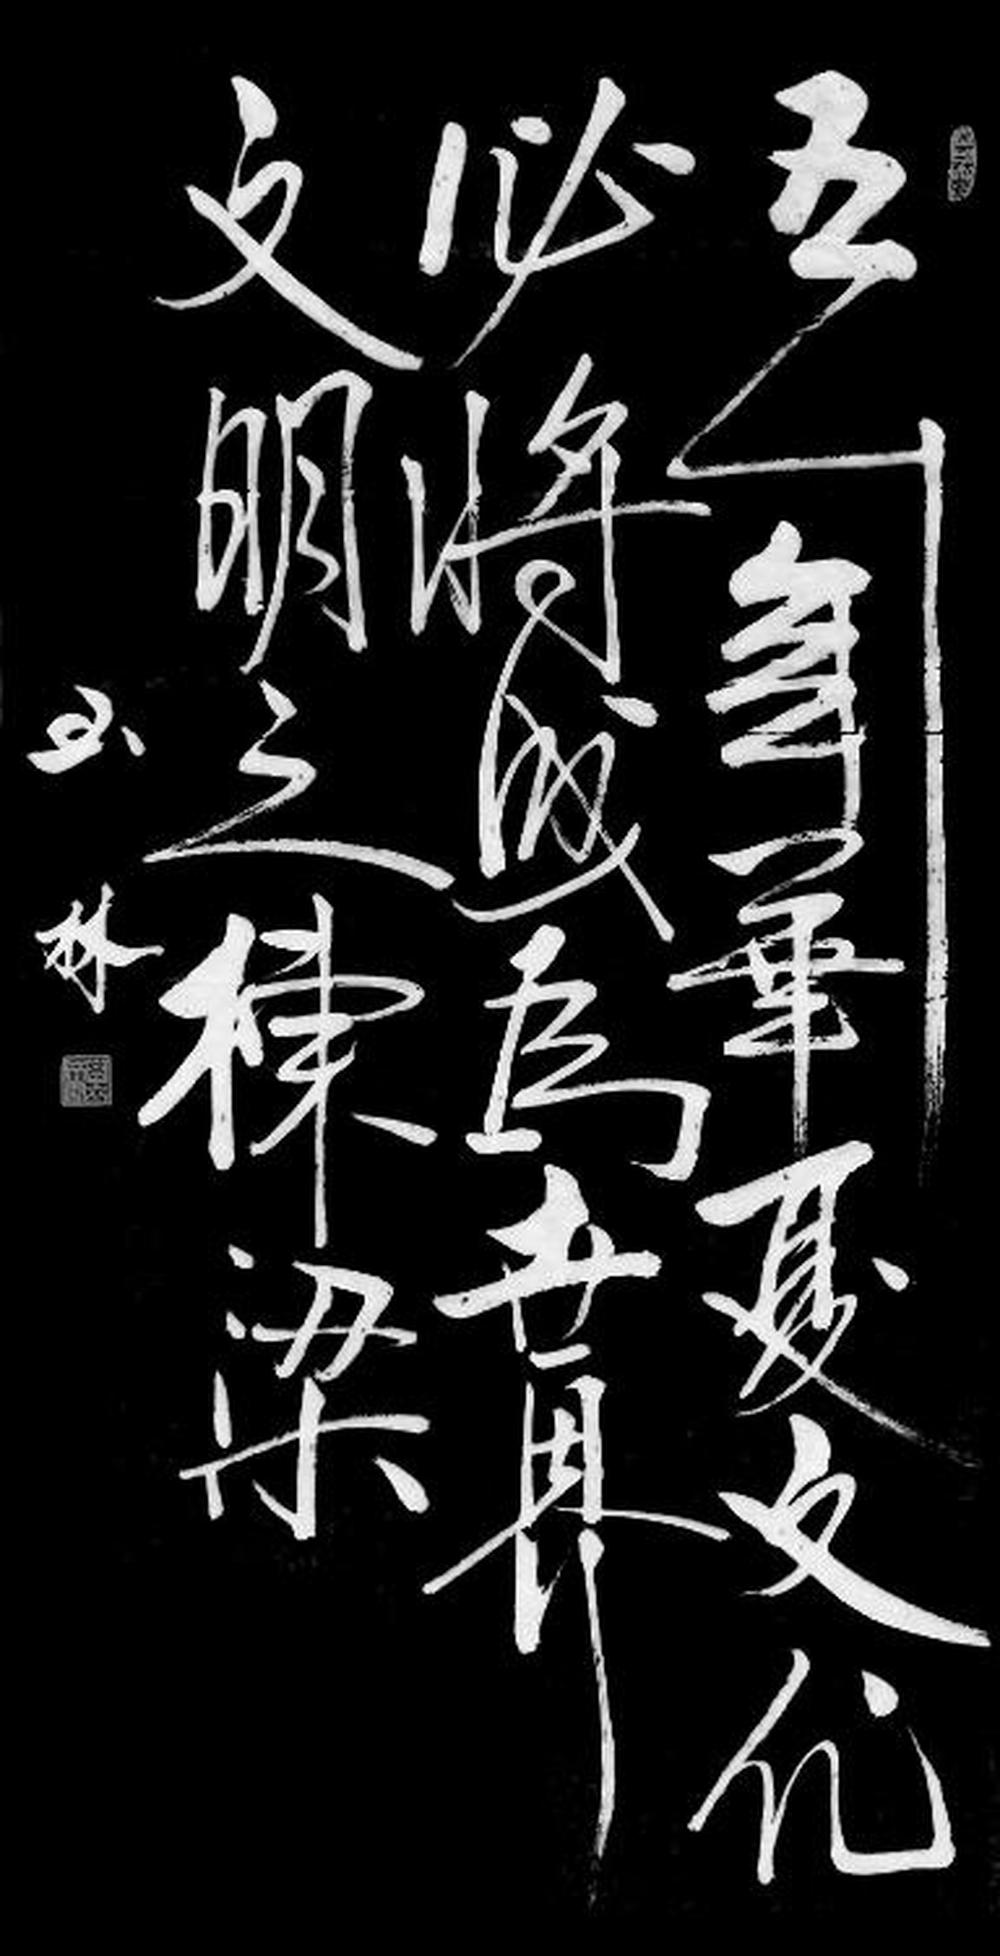 五千年華夏文化
必將成為世界
文明之棟梁
玉林